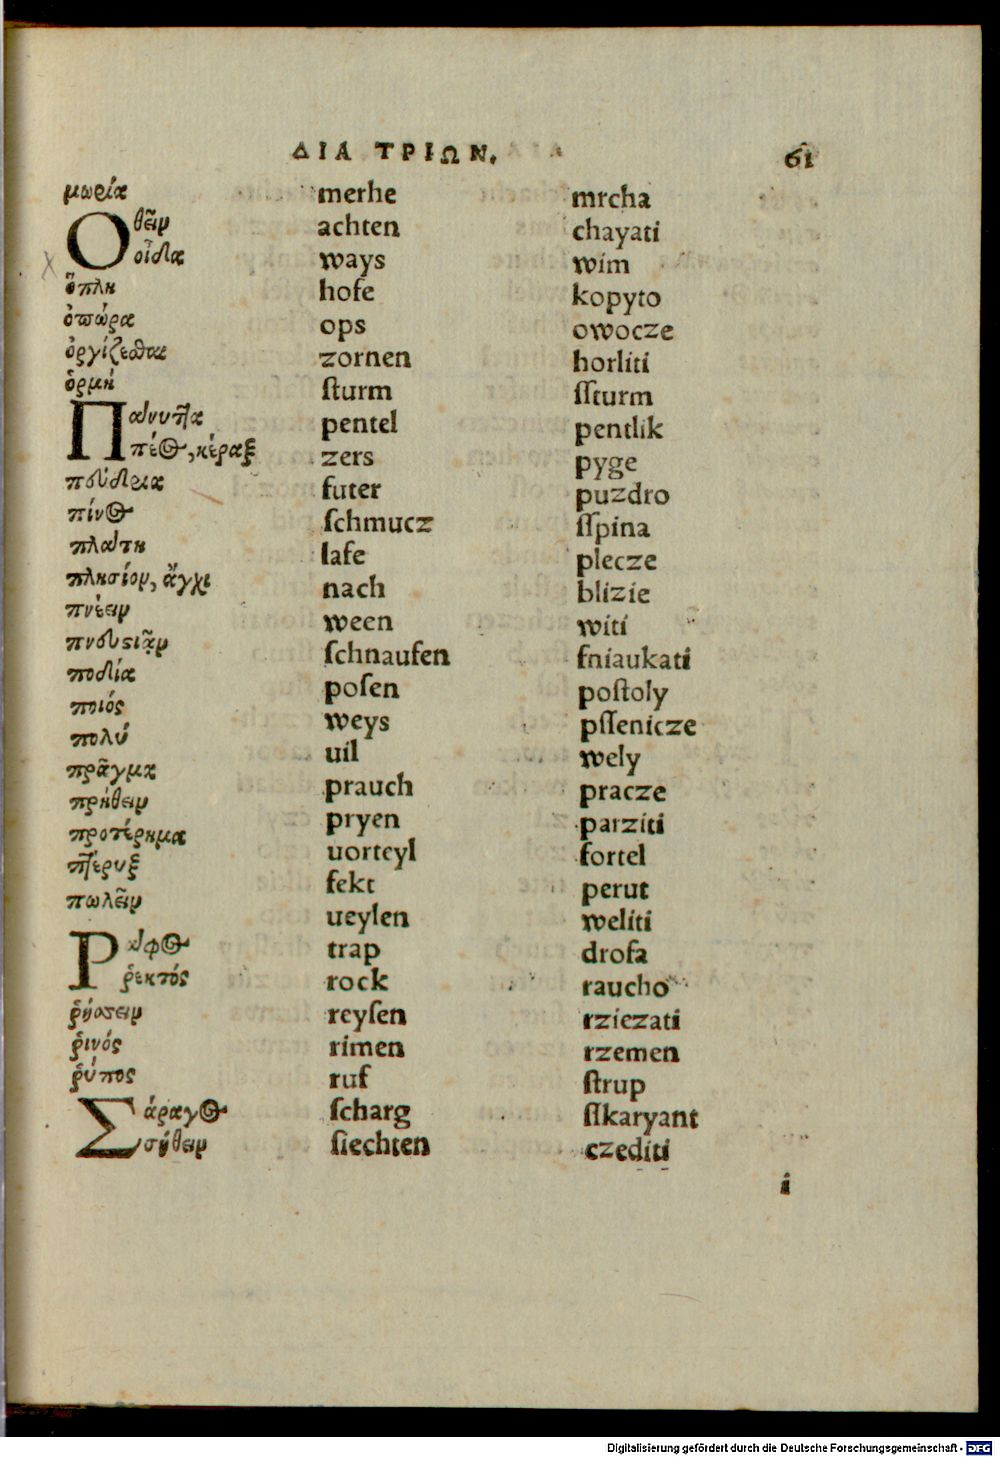 ΔΙΑ ΤΡΙΩΝ. 61
μωρία merhe mrcha
Οθεῖν achten chayati
οἶδα ways wim
ὅπλη hofe kopyto
ὀπώρα ops owocze
ὀργίζεσθαι zornen horliti
ὁρμή ſturm ſſturm
Παννυτῆα pentel pentlik
πέος, κέραξ zers pyge
πούδρια futer puzdro
πίνος ſchmucz ſſpina
πλάτη lafe plecze
πλησίον, ἄγχι nach blizie
πνέειν ween witi
πνευστιᾷν ſchnaufen fniaukati
ποδία poſen poſtoly
ποιός weys pſſenicze
πολύ uil wely
πρᾶγμα prauch pracze
πρήθειν pryen parziti
προτέρημα uorteyl fortel
πτέρυξ fekt perut
πωλεῖν ueylen weliti
Ράφος trap drofa
ῥεκτός rock raucho
ῥήσσειν reyſen rziezati
ῥινός rimen rzemen
ῥύπος ruf ſtrup
Σάραγος ſcharg ſſkaryant
σήθειν ſiechten czediti
i
Digitalisierung gefördert durch die Deutsche Forschungsgemeinschaft - DFG